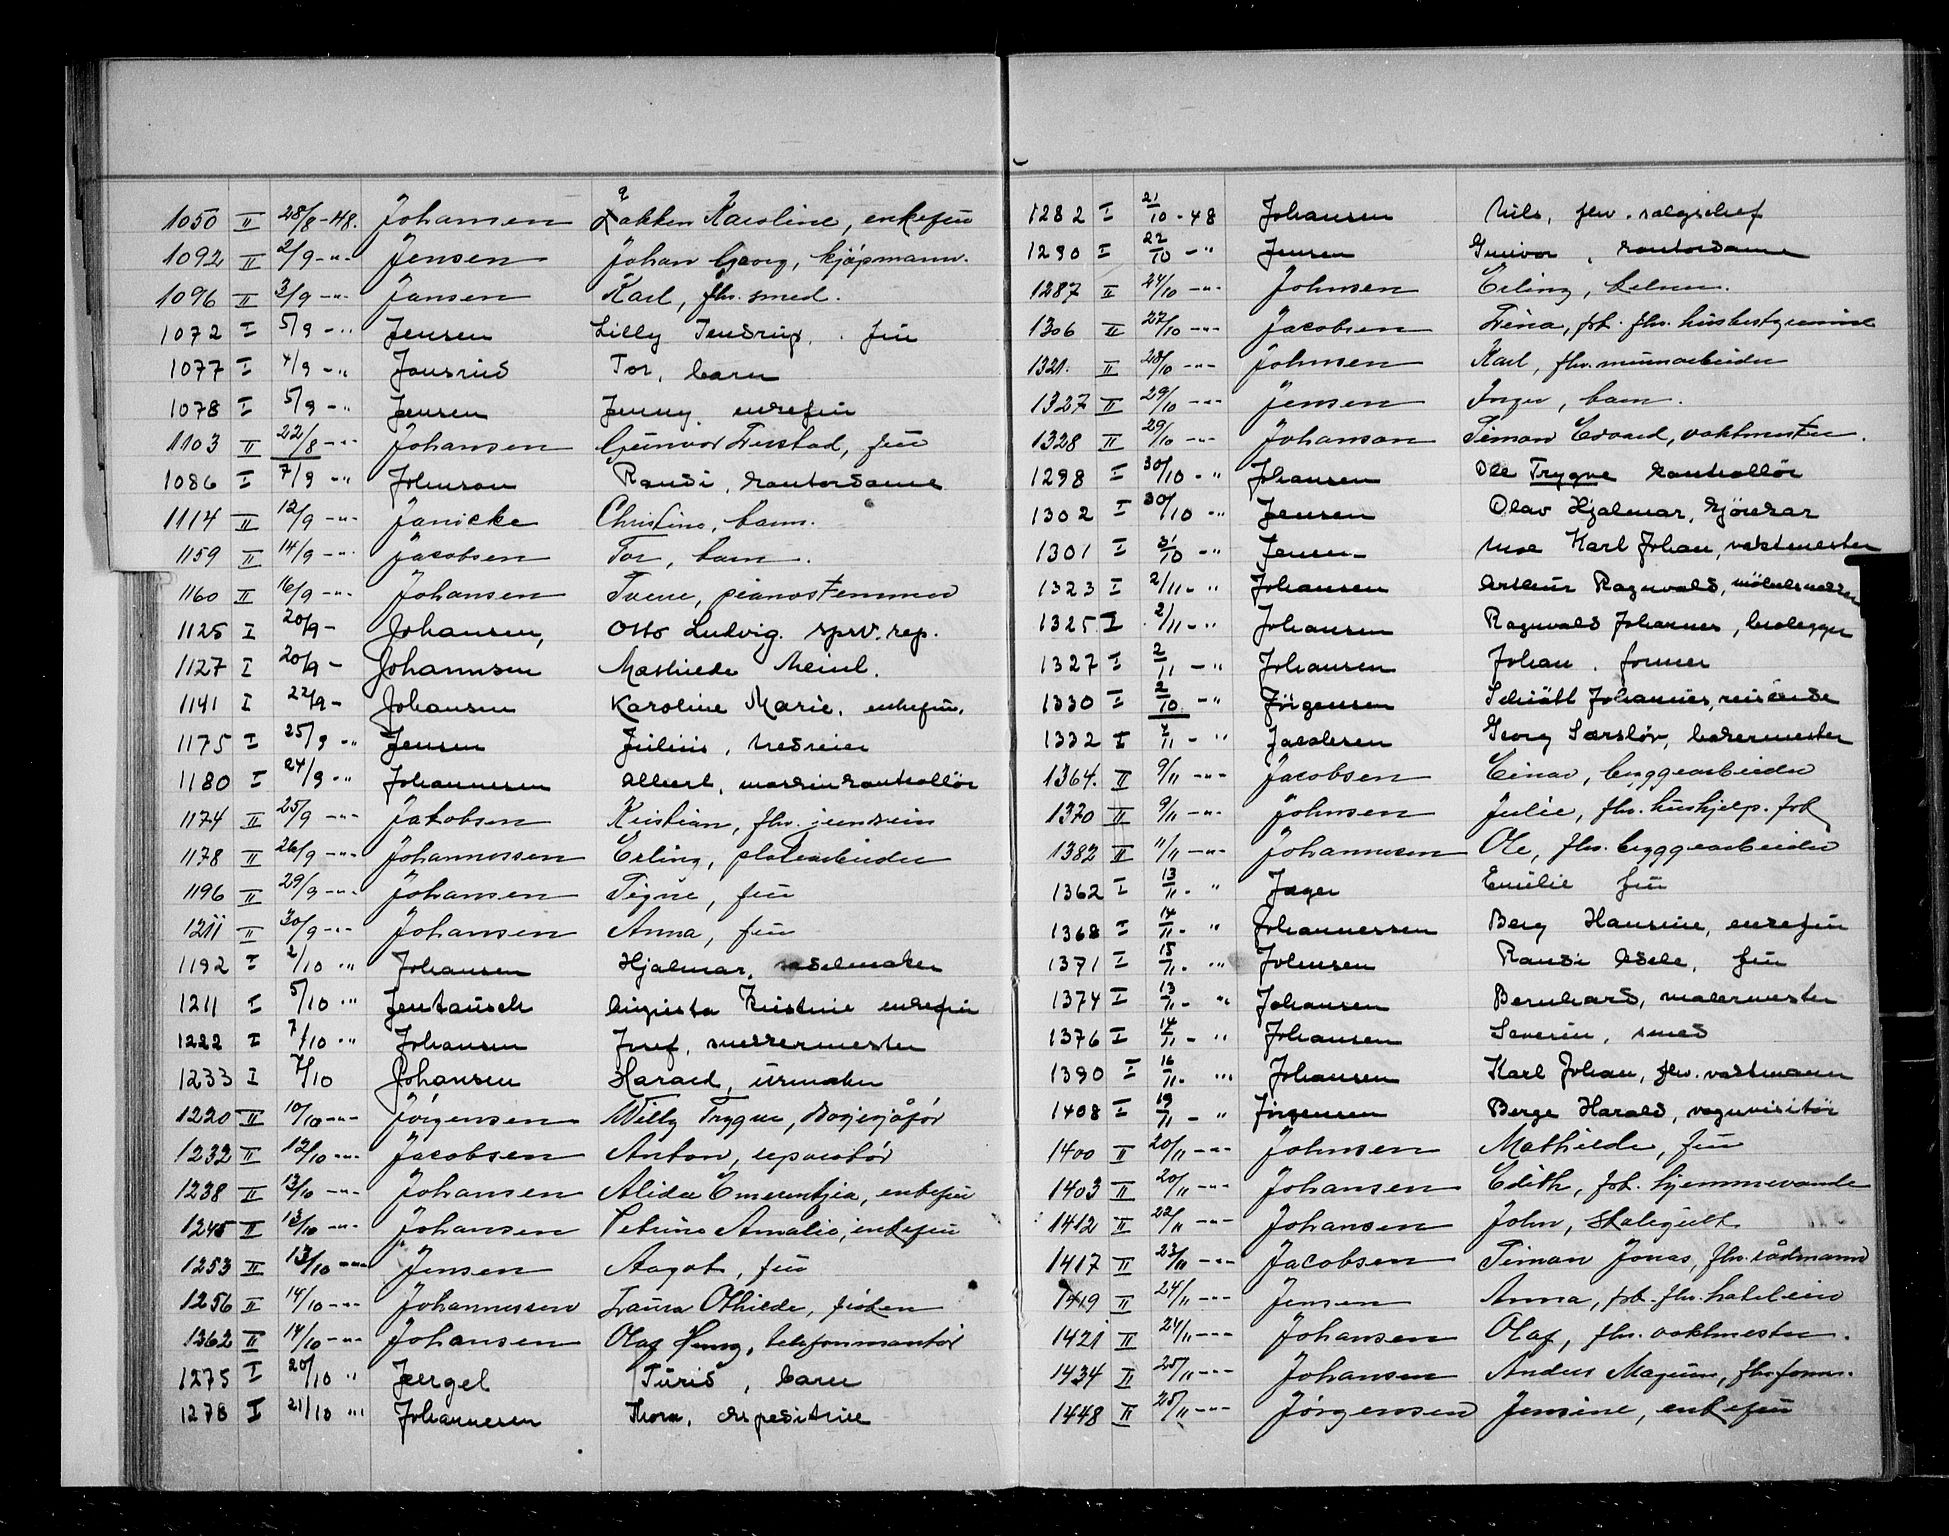 1050 II 28/8-48. Johansen Lakken Karoline, enkefru
1092 II 2/9 -"- Jensen Johan Georg, kjøpmann.
1096 II 3/9 -"- Jansen Karl, fhv. smed.
1072 I 5/9 -"- Jensen Lilly Tendrup, fru
1077 I 4/9 -"- Jonsrud Tor, barn
1078 I 5/9 -"- Jensen Jenny, enkefru
1103 II 22/8 -"- Johansen Gunvor Furstad, fru
1086 I 7/9 -"- Johnson Randi, kontordame
1114 II 12/9 -"- Janicke Christine, barn.
1159 II 14/9 -"- Jacobsen Tor, barn.
1160 II 16/9 -"- Johansen Sverre, pianostemmer
1125 I 20/9 - Johansen, Otto Ludvig. sprv. rep.
1127 I 20/9 - Johannsen Mathilde Meinl.
1141 I 22/9 - Johansen Karoline Marie, enkefru.
1175 I 25/9 -"- Jensen Julius, vedreier
1180 I 24/9 -"- Johannesen Albert, maskinkontrollør
1174 II 25/9 -"- Jakobsen Kristian, fhv.
1178 II 26/9 -"- Johannessen Erling, platearbeider
1196 II 29/9 -"- Johansen Signe, fru
1211 II 30/9 -"- Johansen Anna, fru
1192 I 2/10 -"- Johansen Hjalmar, sadelmaker
1211 I 5/10 -"- Jentausch Augusta Kristine enkefru
1222 I 7/10 -"- Johansen Josef, snekkermester
1233 I 7/10 Johansen Harald, urmaker
1220 II 10/10 -"- Jørgensen Willy Trygve,
1232 II 12/10 -"- Jacobsen Anton, reparatør
1238 II 13/10 -"- Johansen Alida Emerentzia, enkefru
1245 II 13/10 -"- Johansen Petrine Amalie, enkefru
1253 II 13/10 -"- Jensen Aagot, fru
1256 II 14/10 -"- Johannessen Laura Othilde, frøken
1362 II 14/10 -"- Johansen Olaf Henry, telefonmontør
1275 I 20/10 " Jergel Turid, barn
1278 I 21/10 "' Johannesen Thora, ekspeditrise
1282 I 21/10 - 48 Johansen Nils, fhv. salgschef
1290 I 22/10 -" Jensen Gunvor, kontordame
1287 II 24/10 -"- Johnsen Erling, kelner.
1306 II 27/10 -"- Jacobsen Trina, frk. fhv. husbestyrerinde
1321. II 28/10 -"- Johnsen Karl, fhv. murarbeider
1327 II 29/10 -"- Jensen Inger, barn.
1328 II 29/10 -"- Johanson Simon Edvard, vaktmester.
1298 I 30/10 -" Johansen Ole Trygve kontrollør
1302 I 30/10 -" Jensen Olav Hjalmar, kjørekar
1301 I 31/10 -" Jensen Moe Karl Johan, vaktmester
1323 I 2/11 -" Johansen Arthur Ragnvald, møbelsnekker
1325 I 2/11 -" Johansen Ragnvald Johannes, brolegger
1327 I 2/11 -" Johansen Johan, former
1330 I 2/10 -" Jørgensen Schiøtt Johannes, reisende
1332 I 2/11 -" Jacobsen Georg Særsløv, bakermester
1364. II 9/11 -"- Jacobsen Einar, byggearbeider
1370 II 9/11 -"- Johnsen Julie, fhv. hushjelp. frk
1382 II 11/11 -"- Johannesen Ole, fhv. byggearbeider
1362 I 13/11 - " Jæger Emilie fru
1368 I 14/11 - " Johannessen Berg Hansine, enkefru
1371 I 15/11 - "' Johnsen Randi Adele, fru
1374 I 13/11 - " Johansen Bernhard, malermester
1376 I 14/11 - " Johansen Severin, smed
1390 I 16/11 - "' Johansen Karl Johan, fhv. vaktmann
1408 I 19/11 - " Jørgensen Berge Harald, vognvisitør
1400 II 20/11 -"- Johnsen Mathilde, fru
1403 II 20/11 -"- Johansen Edith, frk. hjemmeværende
1412 II 22/11 -"- Johansen John, skolegutt
1417 II 23/11 -"- Jacobsen Simon Jonas, fhv. rådmann
1419 II 24/11 -"- Jensen Anna, frk. fhv. hoteleier
1421 II 24/11 -"- Johansen Olaf, fhv. vaktmester.
1434 II 25/11 -"- Johansen Anders Magnus, fhv. form.
1448 II 25/11 -"- Jørgensen Jensine, enkefru